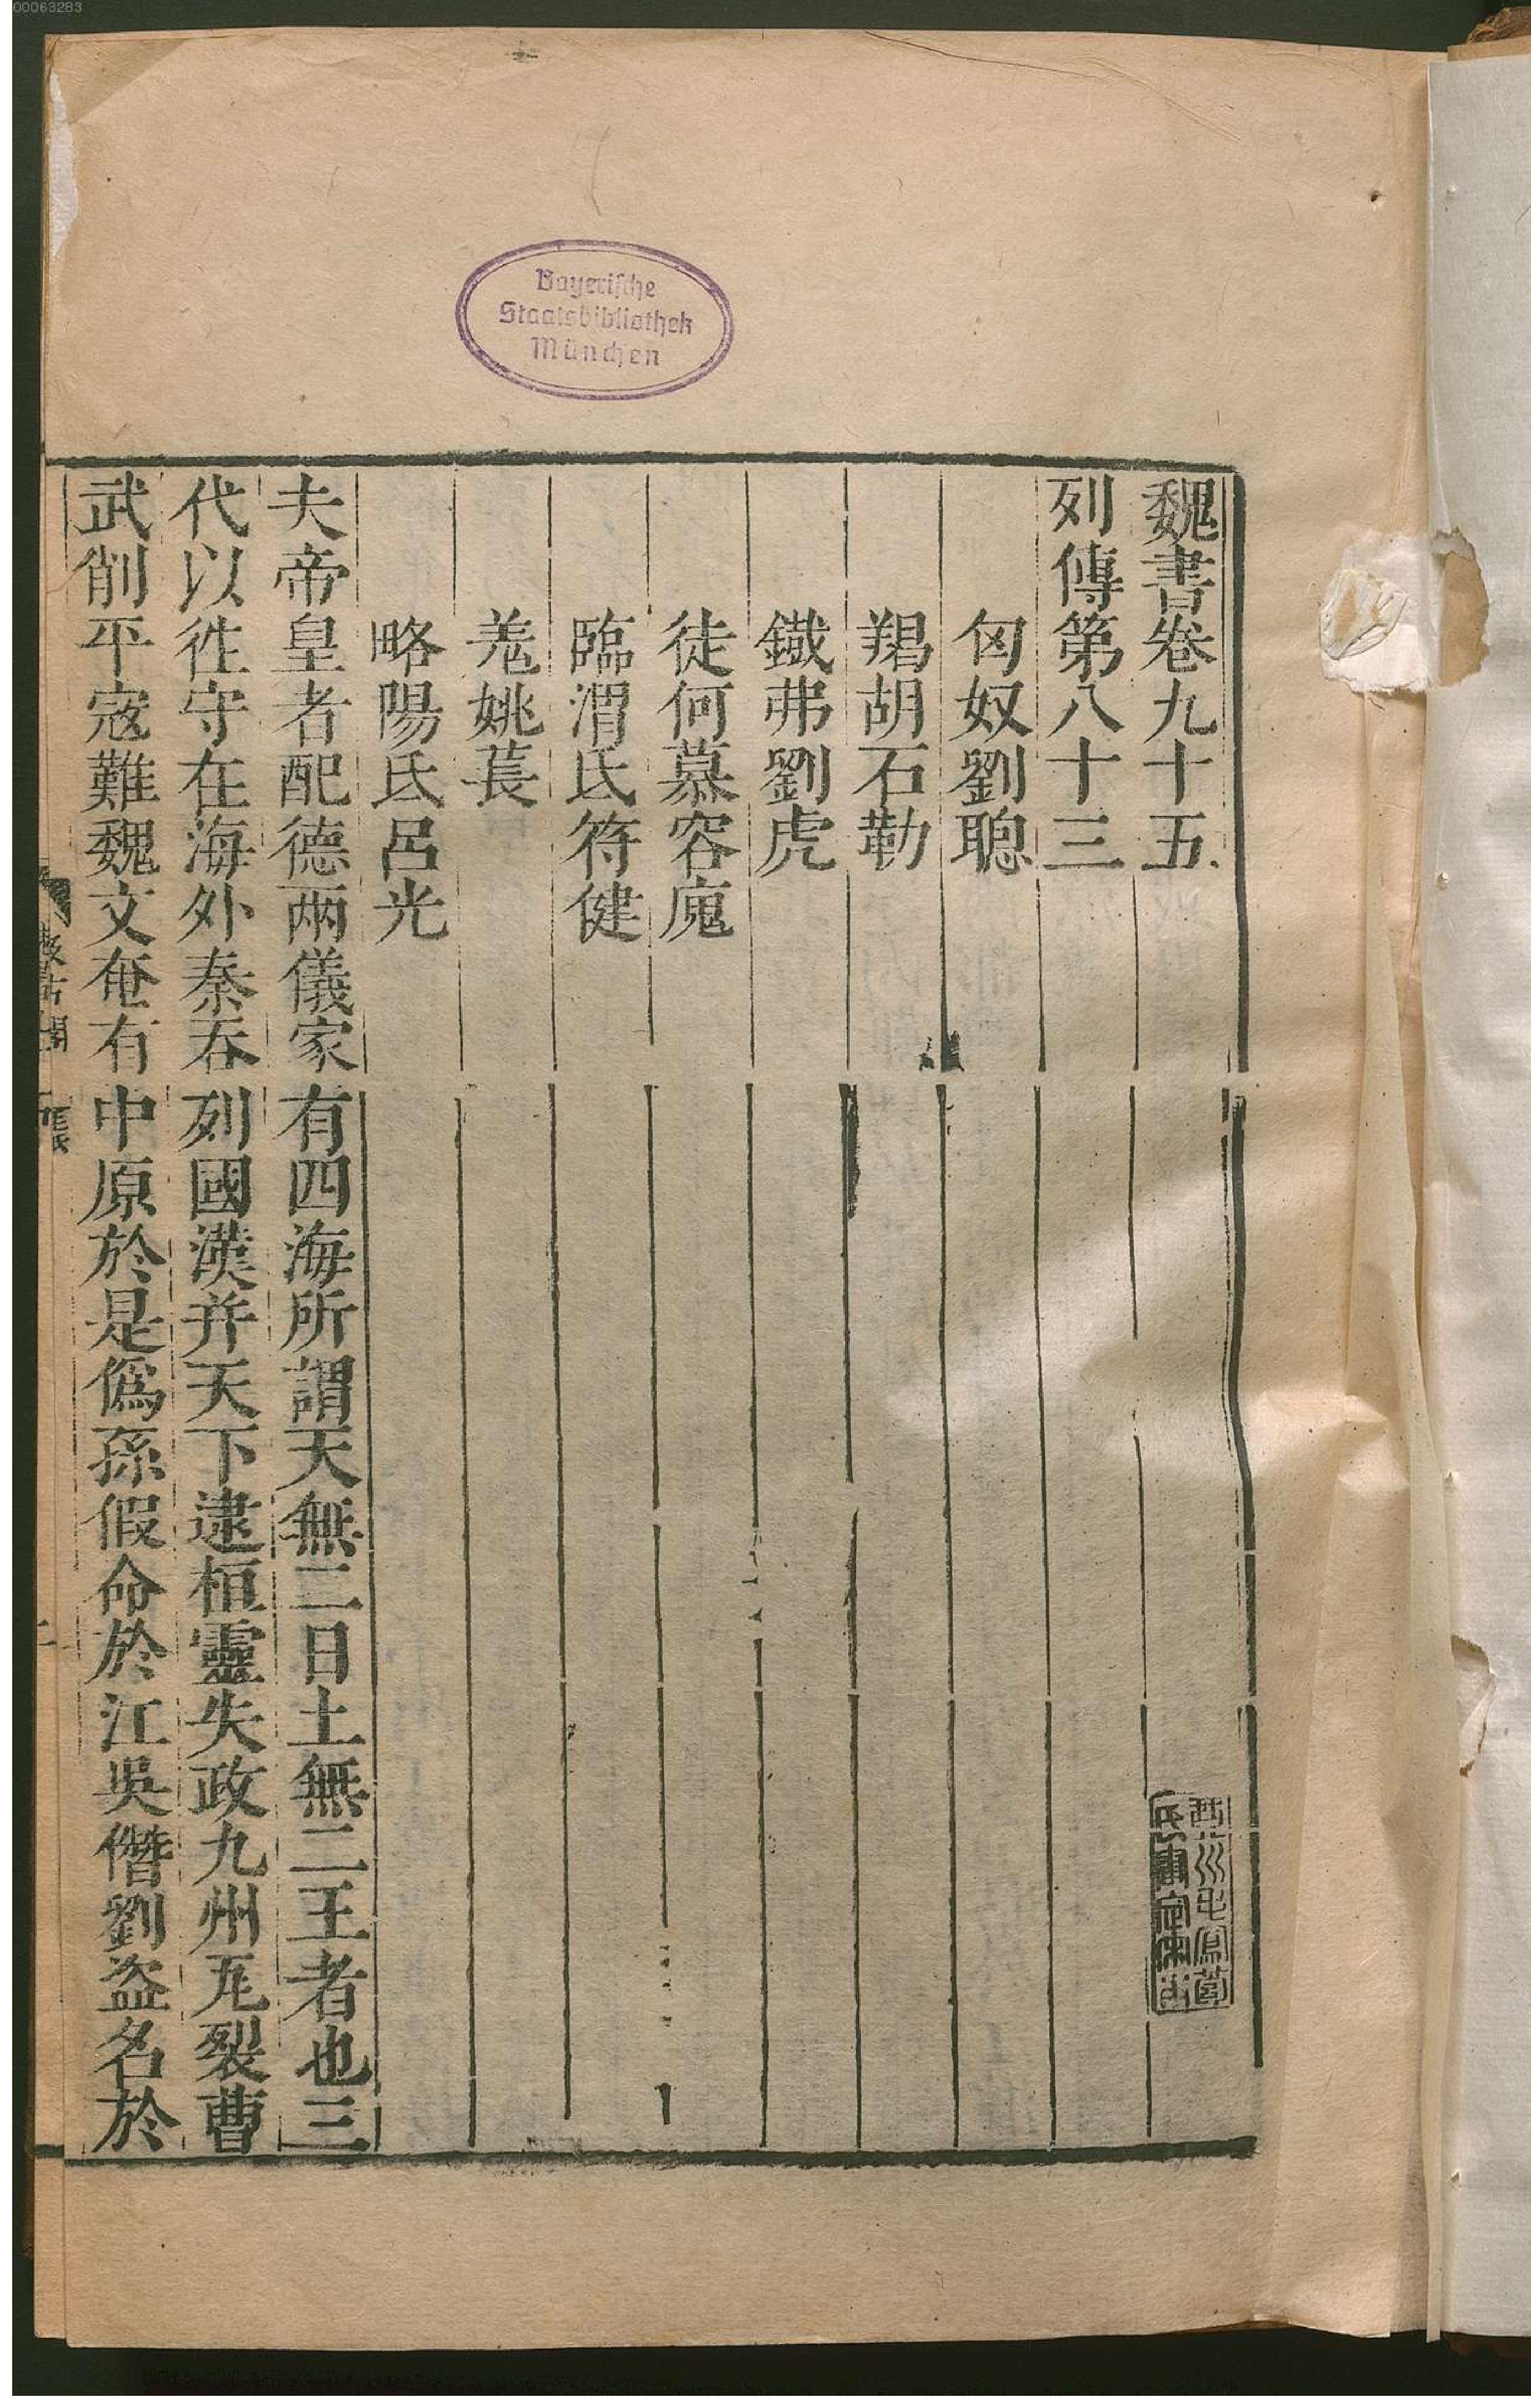 00063283
Bayerische
Staatsbibliothek
München
魏書卷九十五
列傳第八十三
匈奴劉聰
羯胡石勒
鐵弗劉虎
徒何慕容廆
臨渭氐苻健
羌姚萇
略陽氐呂光
夫帝皇者配德兩儀家有四海所謂天無二日土無二王者也三
代以往守在海外秦吞列國漢并天下逮桓靈失政九州瓦裂曹
武削平寇難魏文奄有中原於是僞孫假命於江吳僭劉盜名於